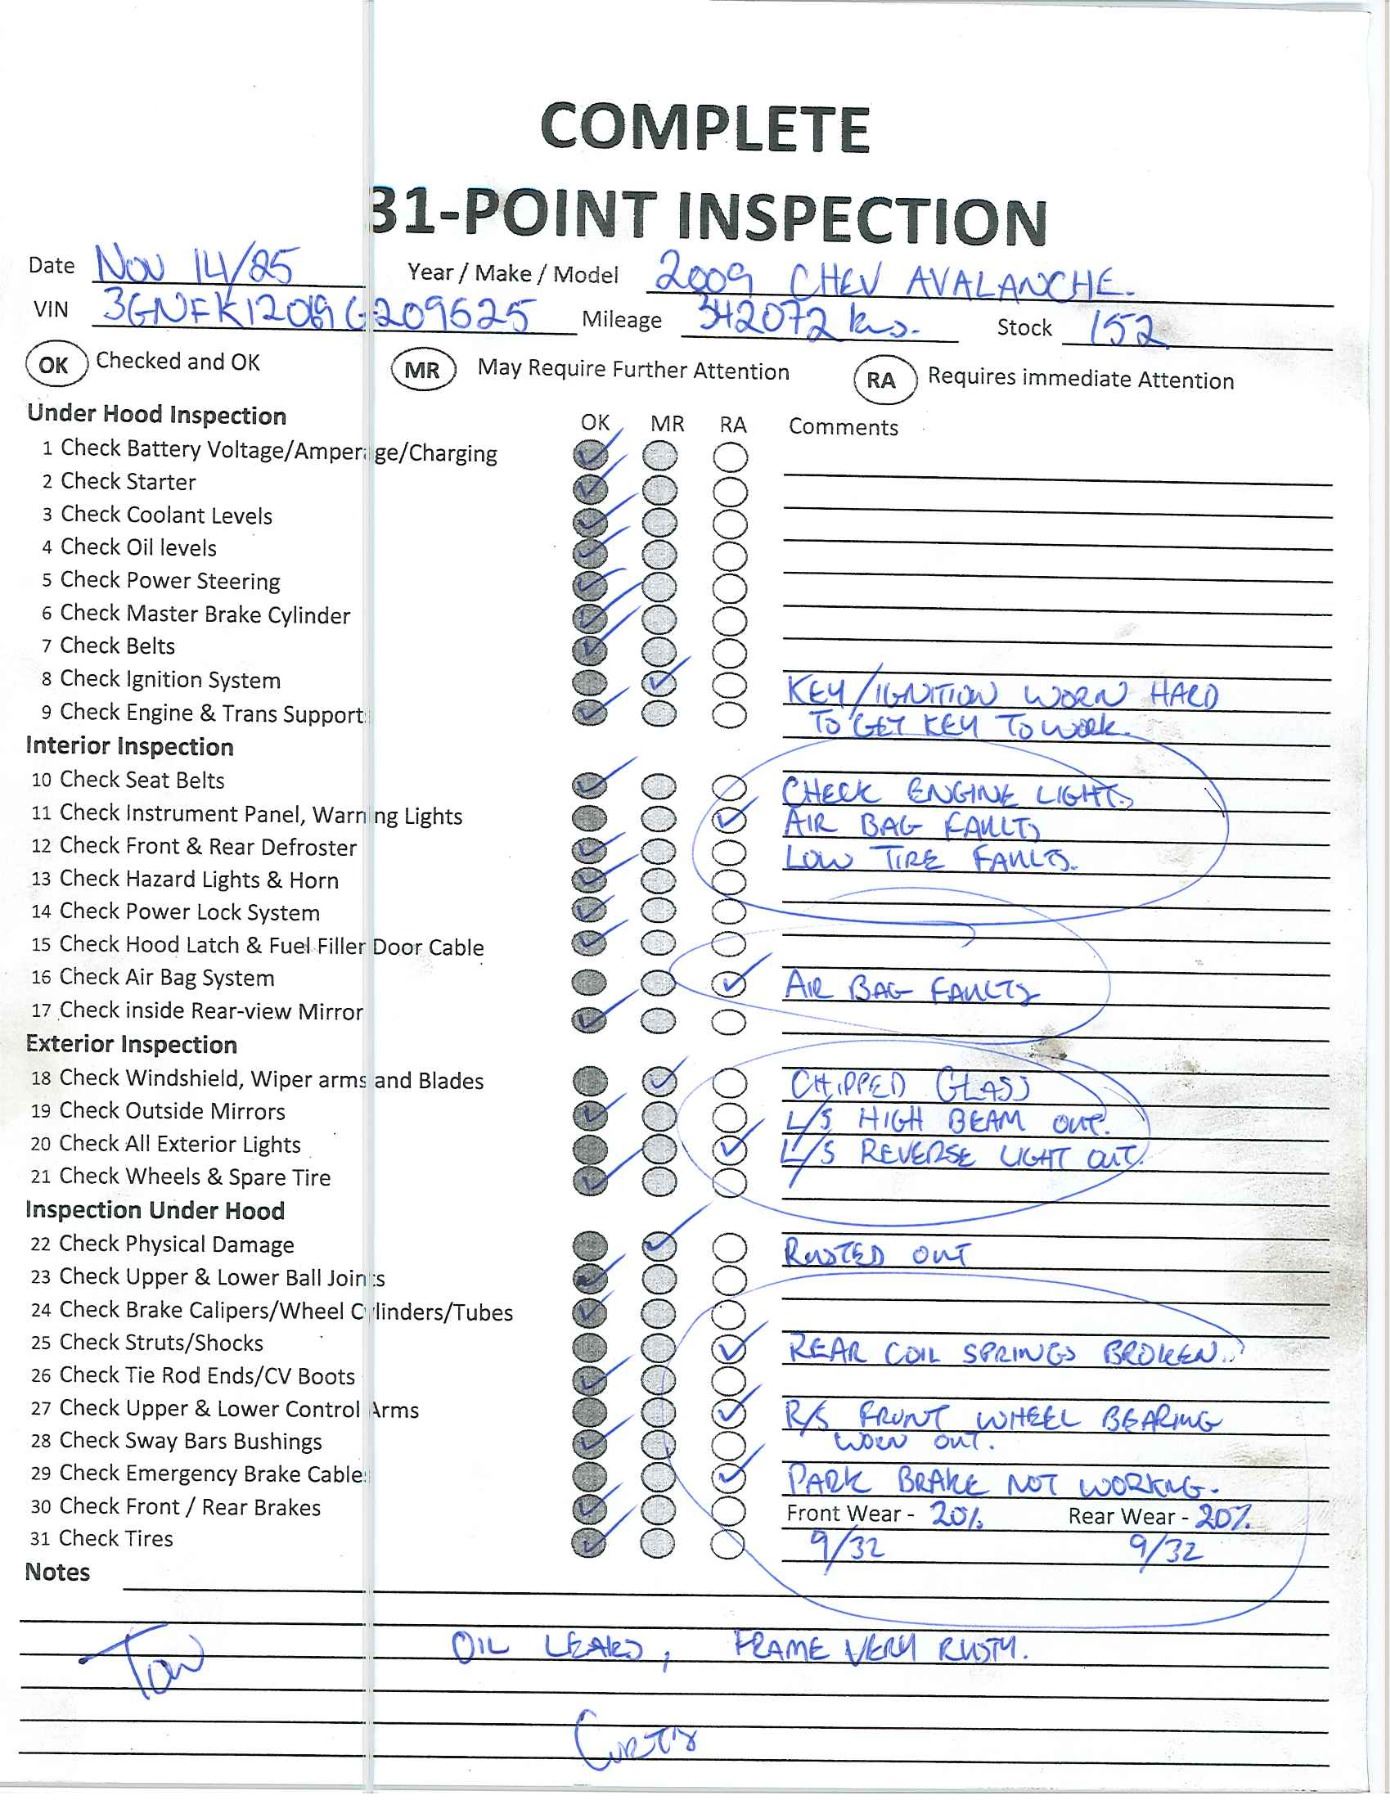 COMPLETE
31-POINT INSPECTION
Date Nov 14/25 Year / Make / Model 2009 CHEV AVALANCHE.
VIN Mileage 342072 kms. Stock 152
OK Checked and OK MR May Require Further Attention RA Requires immediate Attention
Under Hood Inspection OK MR RA Comments
1 Check Battery Voltage/Amperage/Charging
2 Check Starter
3 Check Coolant Levels
4 Check Oil levels
5 Check Power Steering
6 Check Master Brake Cylinder
7 Check Belts
8 Check Ignition System KEY/IGNITION WORN HARD
9 Check Engine & Trans Support TO GET KEY TO WORK.
Interior Inspection
10 Check Seat Belts CHECK ENGINE LIGHT.
11 Check Instrument Panel, Warning Lights AIR BAG FAULTS
12 Check Front & Rear Defroster LOW TIRE FAULTS.
13 Check Hazard Lights & Horn
14 Check Power Lock System
15 Check Hood Latch & Fuel Filler Door Cable
16 Check Air Bag System AIR BAG FAULTS
17 Check inside Rear-view Mirror
Exterior Inspection
18 Check Windshield, Wiper arms and Blades CHIPPED GLASS
19 Check Outside Mirrors L/S HIGH BEAM OUT.
20 Check All Exterior Lights L/S REVERSE LIGHT OUT.
21 Check Wheels & Spare Tire
Inspection Under Hood
22 Check Physical Damage RUSTED OUT
23 Check Upper & Lower Ball Joints
24 Check Brake Calipers/Wheel Cylinders/Tubes
25 Check Struts/Shocks REAR COIL SPRINGS BROKEN..
26 Check Tie Rod Ends/CV Boots
27 Check Upper & Lower Control Arms R/S FRONT WHEEL BEARING
28 Check Sway Bars Bushings WORN OUT.
29 Check Emergency Brake Cable PARK BRAKE NOT WORKING.
30 Check Front / Rear Brakes Front Wear - 20% Rear Wear - 20%
31 Check Tires 9/32 9/32
Notes
Tow OIL LEAKS, FRAME VERY RUSTY.
Curtis